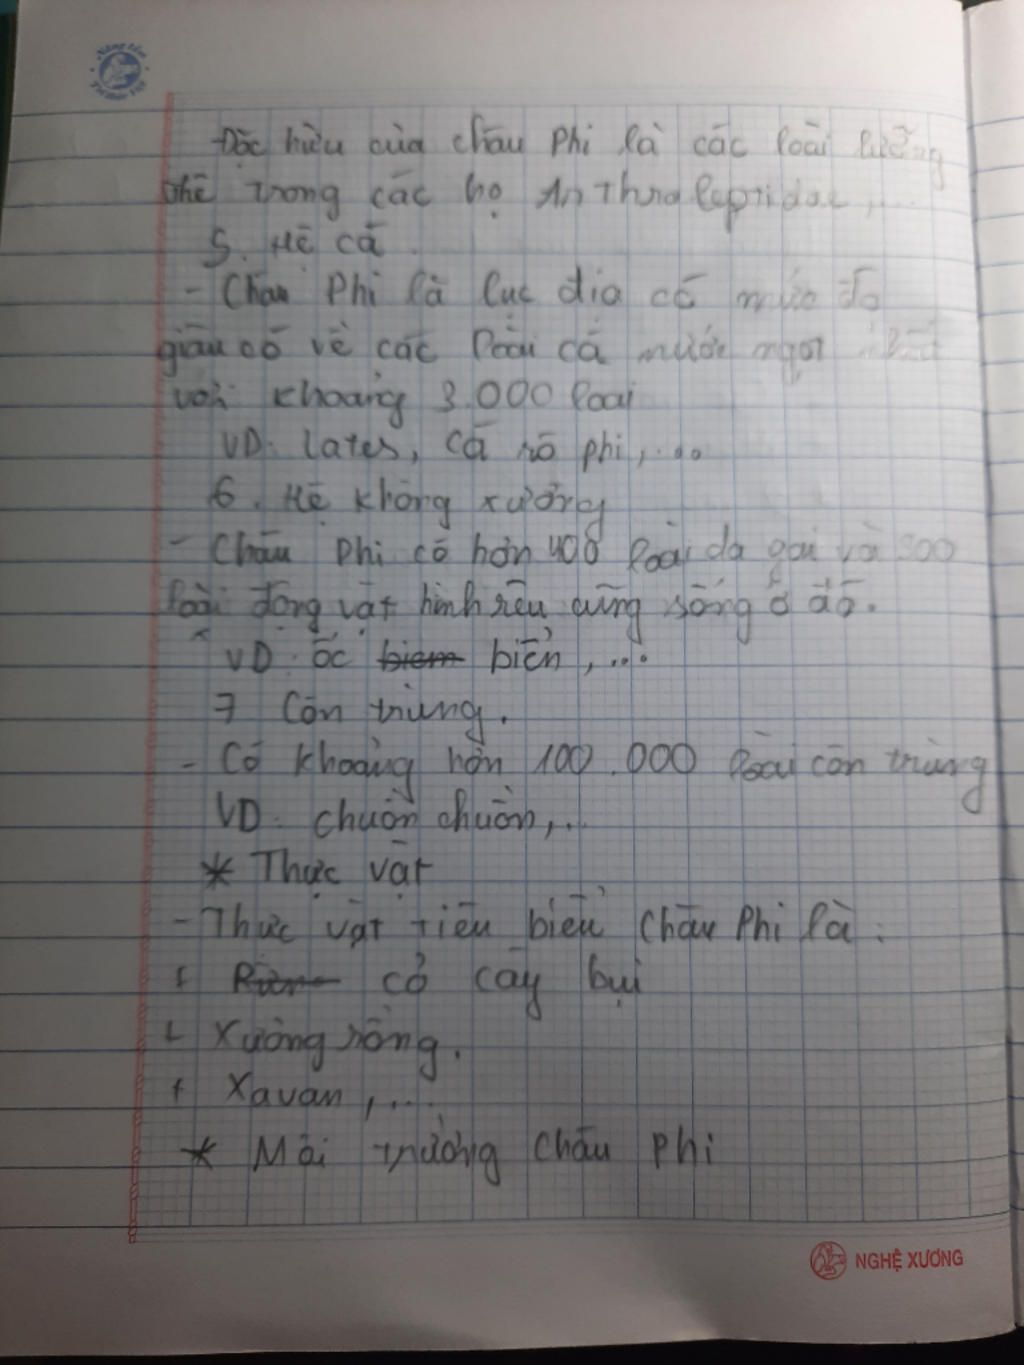 Năng tầm
Tri thức Việt
Đặc hữu của châu Phi là các loài lưỡng
thê trong các họ Anthroleptidae,...
5. Hệ cá.
- Châu Phi là lục địa có mức độ
giàu có về các loài cá nước ngọt
với khoảng 3.000 loài
VD: lates, cá rô phi,...
6. Hệ không xương
- Châu Phi có hơn 400 loài da gai và 500
loài động vật hình rêu cũng sống ở đó.
VD: ốc biển,...
7 Côn trùng.
- Có khoảng hơn 100.000 loài côn trùng
VD: chuồn chuồn,...
* Thực vật
- Thực vật tiêu biểu Châu Phi là:
+ cỏ cây bụi
+ Xương rồng.
+ Xavan,...
* Môi trường Châu Phi
NGHỆ XƯƠNG